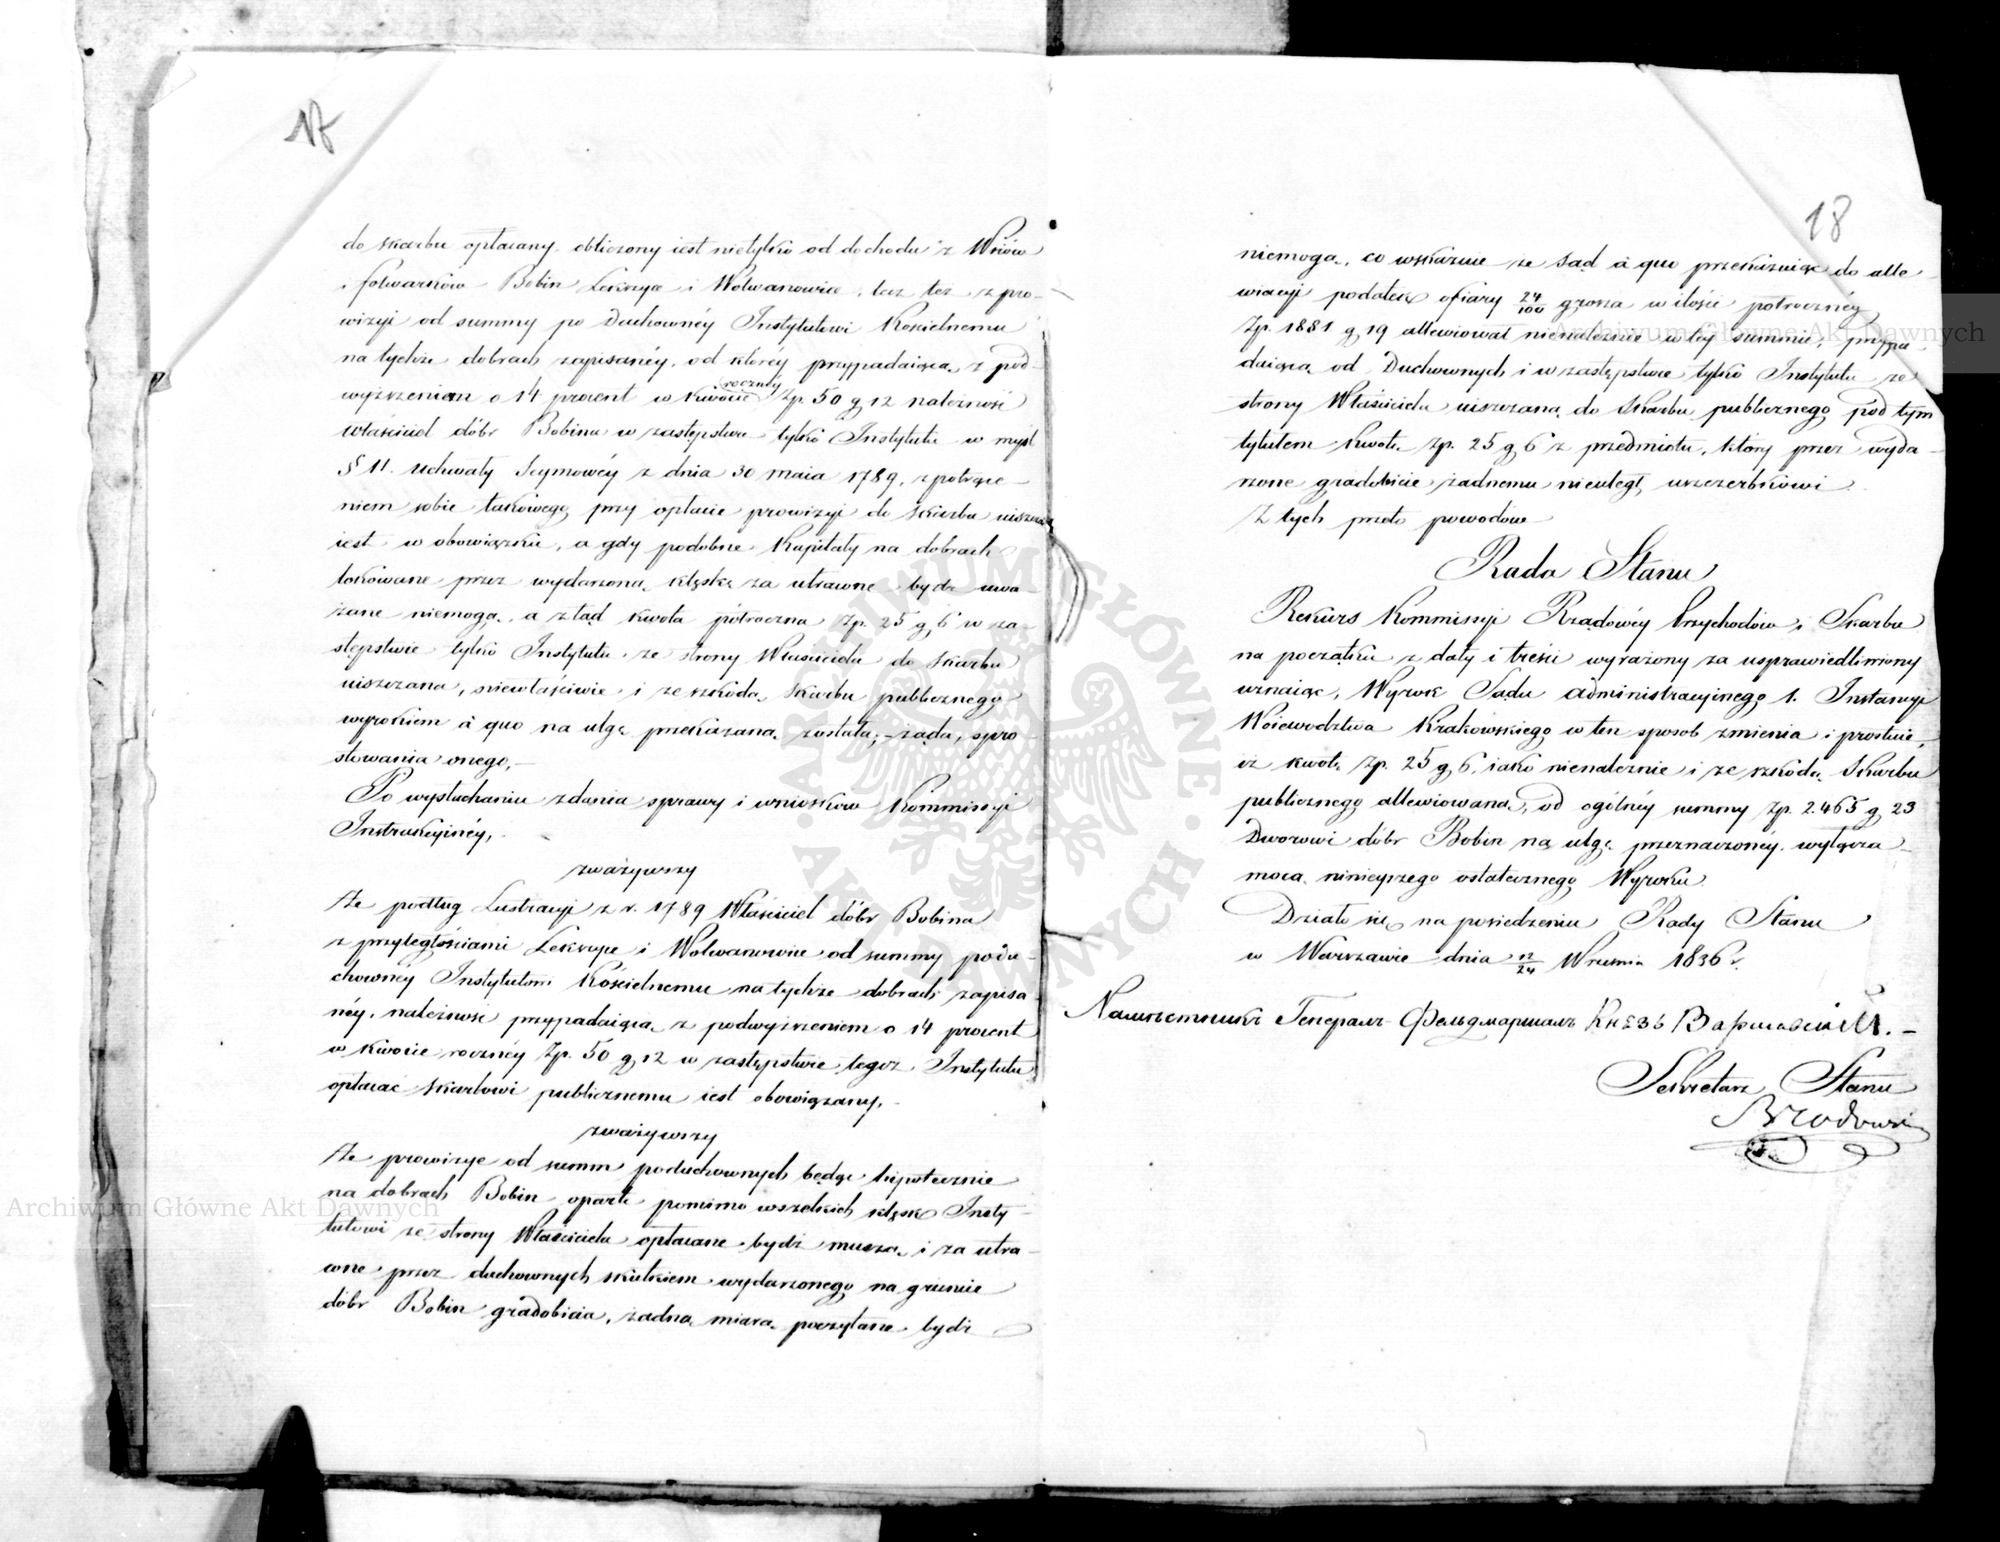 17
do skarbu opłacany obliczony iest nietylko od dochodu z Wsiów
i folwarków Bobin Łekszyce i Wolwanowice, lecz też z pro-
wizyi od summy po Duchownéy Instytutowi Kościelnemu
na tychże dobrach zapisanéy, od któréy przypadaiącą z pod-
wyższeniem o 14 procent w kwocie rocznéy Zp. 50 g. 12 należność
właściciel dóbr Bobina w zastępstwie tylko Instytutu w myśl
§ 11. Uchwały Seymowéy z dnia 30 maia 1789, z potrące-
niem sobie takowego przy opłacie prowizyi do skarbu
iest w obowiązku, a gdy podobne Kapitały na dobrach
lokowane przez wydarzoną klęskę za utracone bydź uwa-
żane niemogą, a ztąd kwota półroczna Zp. 25 g. 6 w za-
stępstwie tylko Instytutu ze strony Właściciela do skarbu
uiszczana, niewłaściwie i ze szkodą Skarbu publicznego
wyrokiem à quo na ulgę przekazaną została; – żąda, spro-
stowania onego, –
Po wysłuchaniu zdania sprawy i wniosków Kommissyi
Instrukcyinéy,
zważywszy
Że podług Lustracyi z r. 1789 Właściciel dóbr Bobina
z przyległościami Łekszyce i Wolwanowice od summy podu-
chownéy Instytutom Kościelnemu na tychże dobrach zapisa-
néy, należność przypadaiącą z podwyższeniem o 14 procent
w kwocie rocznéy Zp. 50 g. 12 w zastępstwie tegoż Instytutu
opłacać skarbowi publicznemu iest obowiązany, –
zważywszy
Że prowizye od summ poduchownych będąc hipotecznie
na dobrach Bobin oparte pomimo wszelkich klęsk Insty-
tutowi ze strony Właściciela opłacane bydź muszą i za utra-
cone przez duchownych skutkiem wydarzonego na gruncie
dóbr Bobin gradobicia, żadną miarą poczytane bydź
18
niemogą, co wskazuie że Sąd à quo przekazuiąc do alle-
wiacyi podatek ofiary 24/100 grosza w ilości półrocznéy
Zp. 1881 g. 19 allewiował nienależnie w téy summie, przypa-
daiącą od Duchownych i w zastępstwie tylko Instytutu ze
strony Właściciela uiszczaną do Skarbu publicznego pod tym
tytułem kwotę Zp. 25 g. 6 z przedmiotu, który przez wyda-
rzone gradobicie żadnemu nieuległ uszczerbkowi.
Z tych przeto powodów
Rada Stanu
Rekurs Kommissyi Rządowéy Przychodów i Skarbu
na początku z daty i treści wyrażony za usprawiedliwiony
uznaiąc, Wyrok Sądu Administracyinego 1. Instancyi
Woiewodztwa Krakowskiego w ten sposob zmienia i prostuie,
iż kwotę Zp. 25 g. 6, iako nienależnie i ze szkodą Skarbu
publicznego allewiowaną, od ogólnéy summy Zp. 2.465 g. 23
Dworowi dóbr Bobin na ulgę przeznaczonéy, wyłącza
mocą ninieyszego ostatecznego Wyroku.
Działo się na posiedzeniu Rady Stanu
w Warszawie dnia 12/24 Września 1836 r.
Намѣстникъ Генералъ Фельдмаршалъ Князь Варшавскій. –
Sekretarz Stanu
Brodowski
Archiwum Główne Akt Dawnych
Archiwum Główne Akt Dawnych
ARCHIWUM GŁÓWNE AKT DAWNYCH